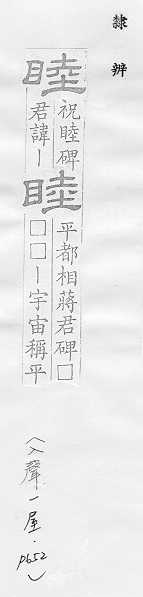 隸辨
睦
祝睦碑
君諱丨
睦
平都相蔣君碑□
□□丨宇宙稱平
(入聲一屋·p652)